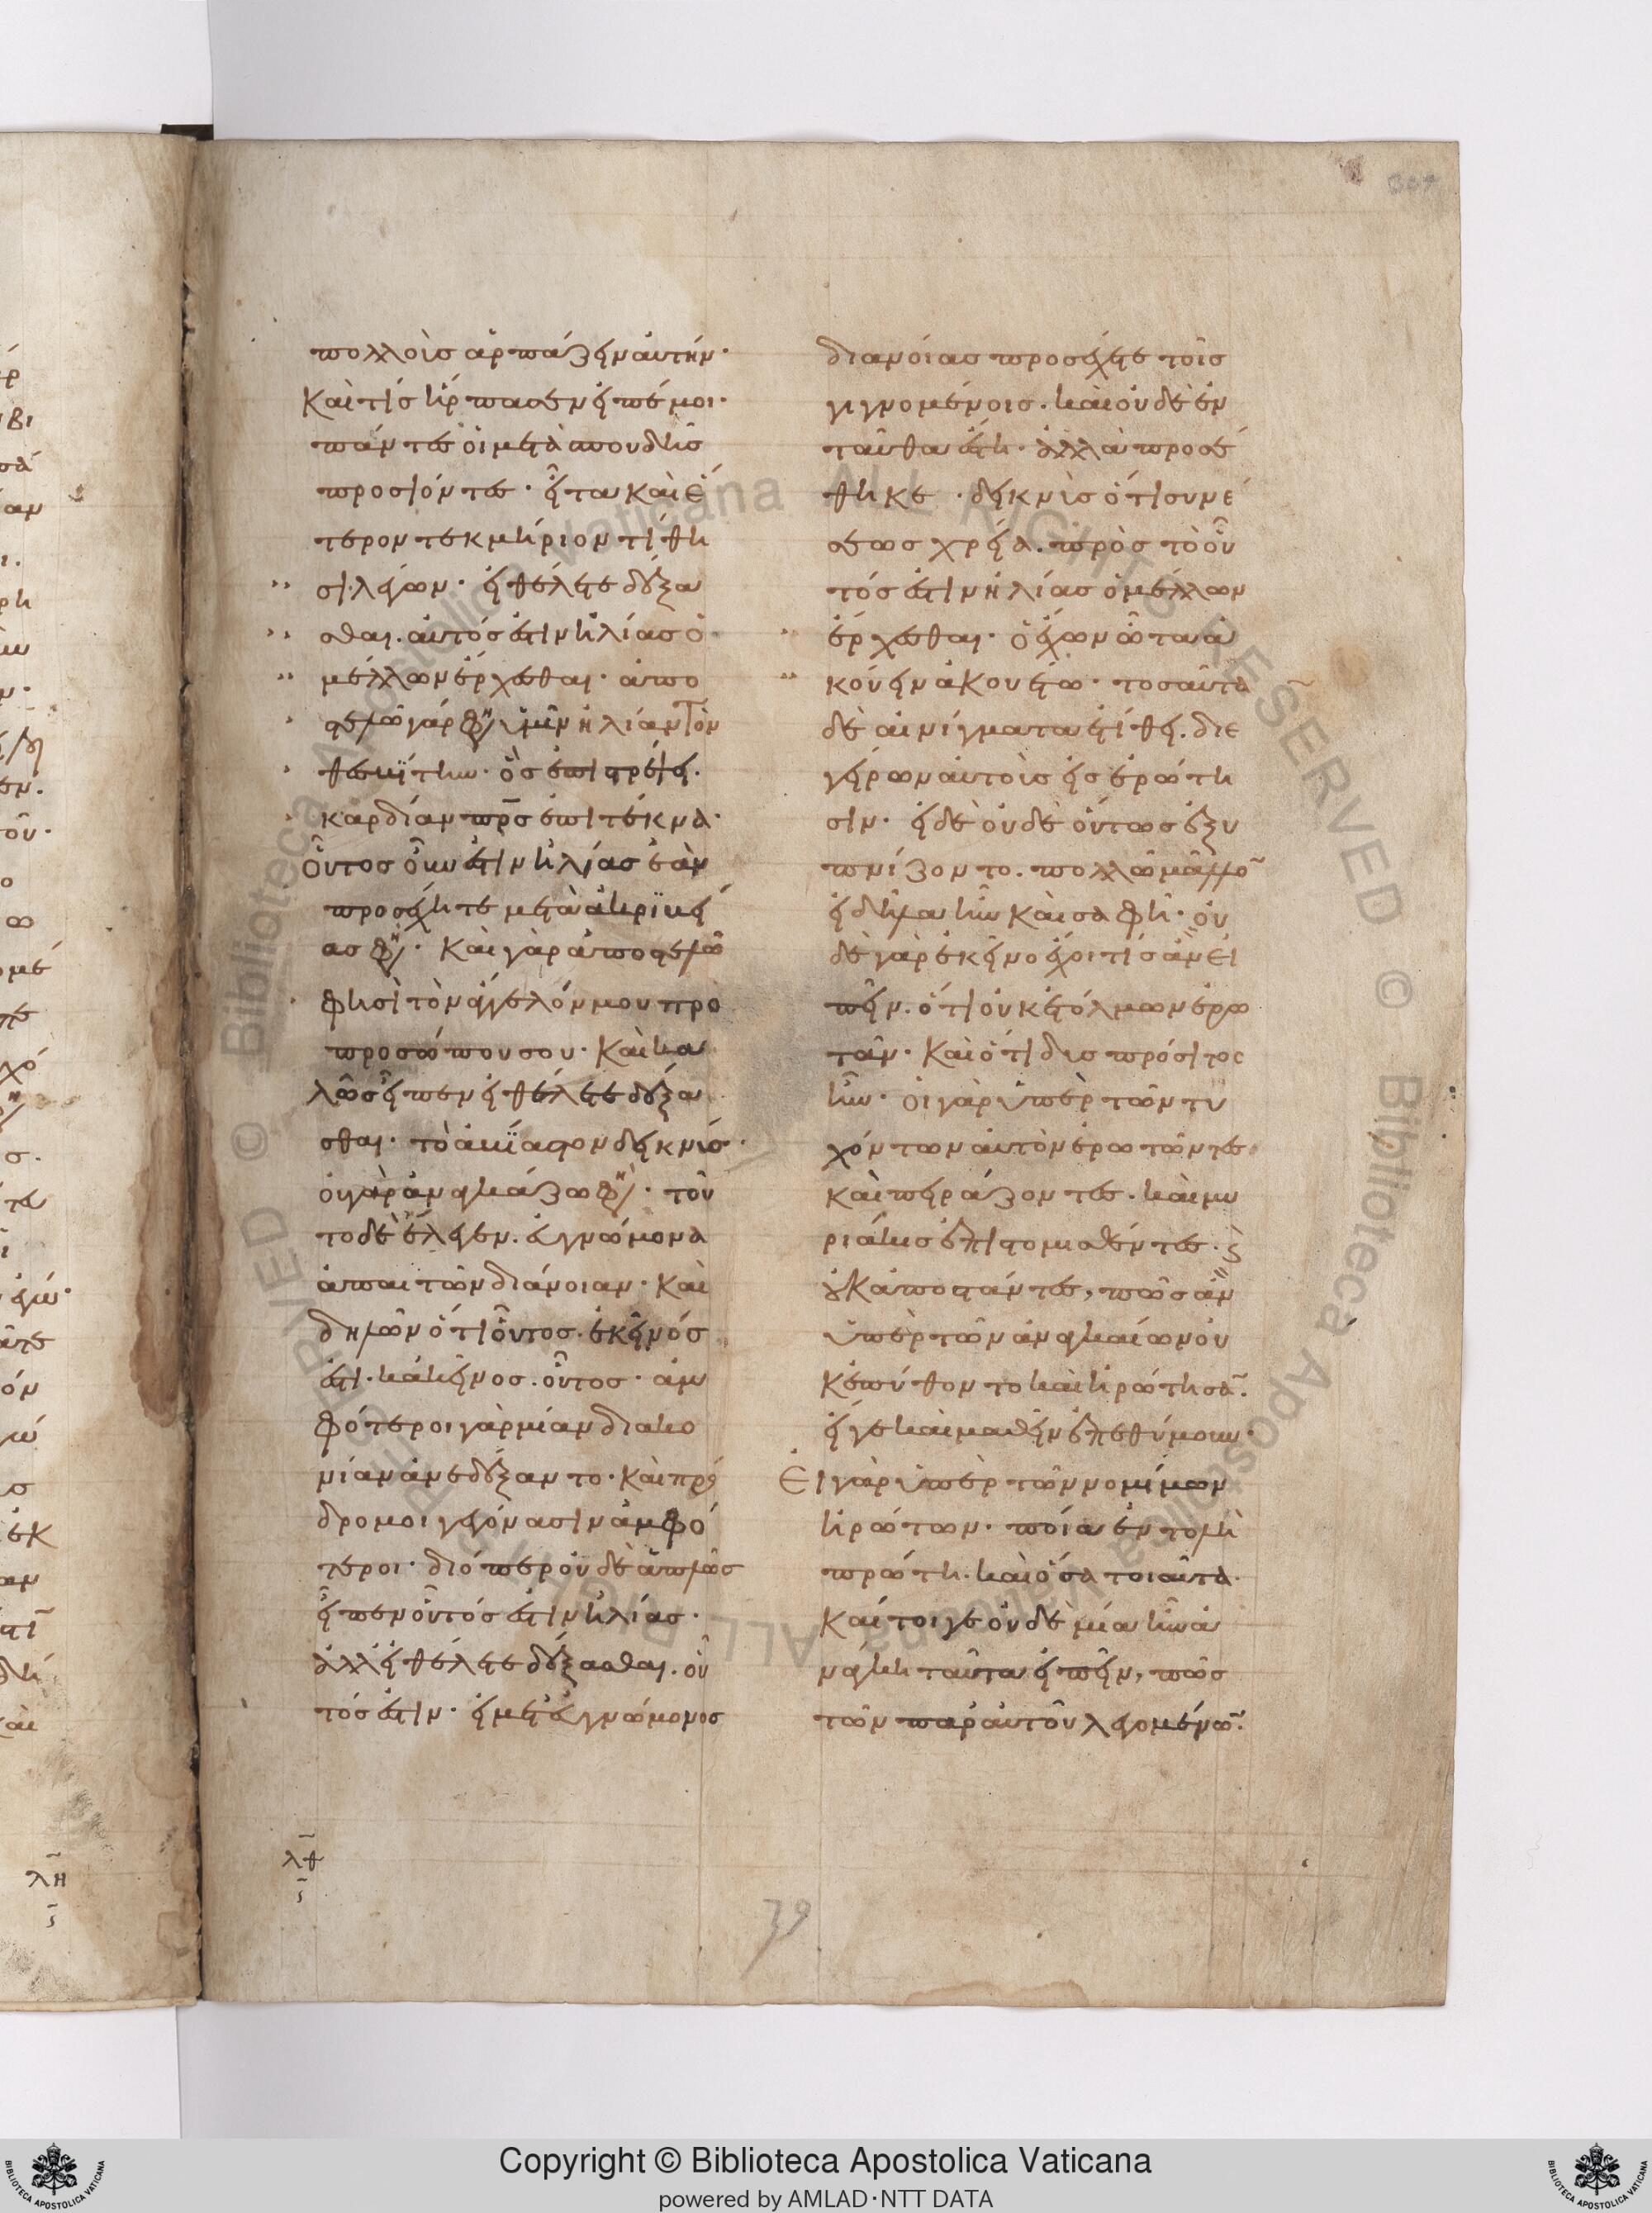 πολλοὶσ ἁρπάζειν αὐτήν·
Καὶ τίσ ἥρπασεν εἰπέ μοι·
πάντεσ οἱ μετὰ σπουδῆσ
προσιόντεσ· εἶτα Καὶ ἕ
τερον τεκμήριον τίθη
σι λέγων· εἰ θέλετε δέξα
σθαι. αὐτόσ ἐστιν ἠλίασ ὁ
μέλλων ἔρχεσθαι· ἀπο
στελῶ γάρ φη ὑμῖν ἠλίαν τὸν
θεσβίτην· ὃσ ἐπιστρέψει
καρδίαν πρσ ἐπὶ τέκνα·
Οὗτοσ οὖν ἐστιν ἠλίασ ἐὰν
προσέχητε μετὰ ἀκριβεί
ασ φη· Καὶ γὰρ ἀποστελῶ
φησὶ τὸν ἄγγελόν μου πρὸ
προσώπου σου· Καὶ κα
λῶσ εἶπεν εἰ θέλετε δέξα
σθαι· τὸ ἀβίαστον δεικνύσ·
οὐ γὰρ ἀναγκάζω φη· τοῦ
το δὲ ἔλεγεν. εὐγνώμονα
ἀπαιτῶν διάνοιαν· Καὶ
δηλῶν ὅτι οὗτοσ. ἐκεῖνόσ
ἐστι. κἀκεῖνοσ. οὗτοσ· ἀμ
φότεροι γὰρ μίαν διακο
νίαν ἀνεδέξαντο· Καὶ πρό
δρομοι γεγόνασιν ἀμφό
τεροι· διόπερ οὐδὲ ἁπλῶσ
εἶπεν οὗτόσ ἐστιν ἠλίασ·
ἀλλ εἰ θέλετε δέξασθαι. οὗ
τόσ ἐστιν· εἰ μετ εὐγνώμονοσ
διανοίασ προσέχετε τοῖσ
γιγνομένοισ. καὶ οὐδὲ ἐν
ταῦθα ἔστη· ἀλλὰ προσέ
θηκε · δεικνὺσ ὅτι συνέ
σεωσ χρεία. πρὸσ τὸ οὗ
τόσ ἐστιν ἠλίασ ὁ μέλλων
ἔρχεσθαι· Ὁ ἔχων ὦτα ἀ
κούειν ἀκουέτω· τοσαῦτα
δὲ αἰνίγματα ἐτίθει. διε
γείρων αὐτοὺσ εἰσ ἐρώτη
σιν· εἰ δὲ οὐδὲ οὕτωσ ἀξυ
πνίζοντο. πολλῶ μᾶλλο
εἰ δῆλα ἦν Καὶ σαφῆ· οὐ
δὲ γὰρ ἐκεῖνο ἔχοι τίσ ἂν εἰ
πεῖν. ὅτι οὐκ ἐτόλμων ἐρω
τᾶν· Καὶ ὅτι δυσπρόσιτοσ
ἦν· οἱ γὰρ ὑπὲρ τῶν τυ
χόντων αὐτὸν ἐρωτῶντεσ·
καὶ πειράζοντεσ. καὶ μυ
ριάκισ ἐπιστομισθέντεσ. Καὶ
οὐκ ἀποστάντεσ, πῶσ ἂν
ὑπὲρ τῶν ἀναγκαίων οὐ
κ ἐπύθοντο καὶ ἠρώτησα.
εἴγε καὶ μαθεῖν ἐπεθύμουν·
Εἰ γὰρ ὑπὲρ τῶν νομίμων
ἠρώτων· ποία ἐντολὴ
πρώτη. καὶ ὅσα τοιαῦτα·
Καίτοιγε οὐδὲ μία ἦν ἀ
νάγκη ταῦτα εἰπεῖν, πῶσ
τῶν παρ αὐτοῦ λεγομένω·
λθ
39
λη
Copyright © Biblioteca Apostolica Vaticana
powered by AMLAD·NTT DATA